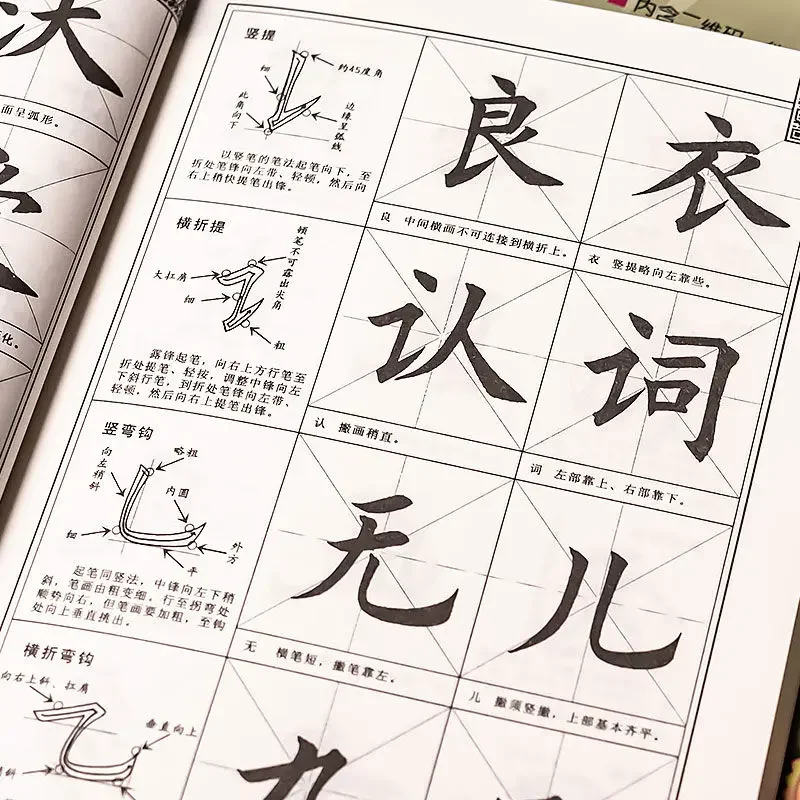 内含二维码
面呈弧形。
化。
竖提
约45度角
细
此角向下
边缘呈弧线
以竖笔的笔法起笔向下，至
折处笔锋向左带、轻顿，然后向
右上稍快提笔出锋。
良
良 中间横画不可连接到横折上。
衣
衣 竖提略向左靠些。
横折提
顿笔不可露出尖角
大扛肩
细
粗
露锋起笔，向右上方行笔至
折处提笔、轻按，调整中锋向左
下斜行笔，到折处笔锋向左带、
轻顿，然后向右上提笔出锋。
认
认 撇画稍直。
词
词 左部靠上、右部靠下。
竖弯钩
向左稍斜
略粗
内圆
细
平
外方
起笔同竖法，中锋向左下稍
斜，笔画由粗变细，行至拐弯处
顺势向右，但笔画要加粗，至钩
处向上垂直挑出。
无
无 横笔短，撇笔靠左。
儿
儿 撇须竖撇，上部基本齐平。
横折弯钩
向右上斜、扛肩
垂直向上
稍斜
九